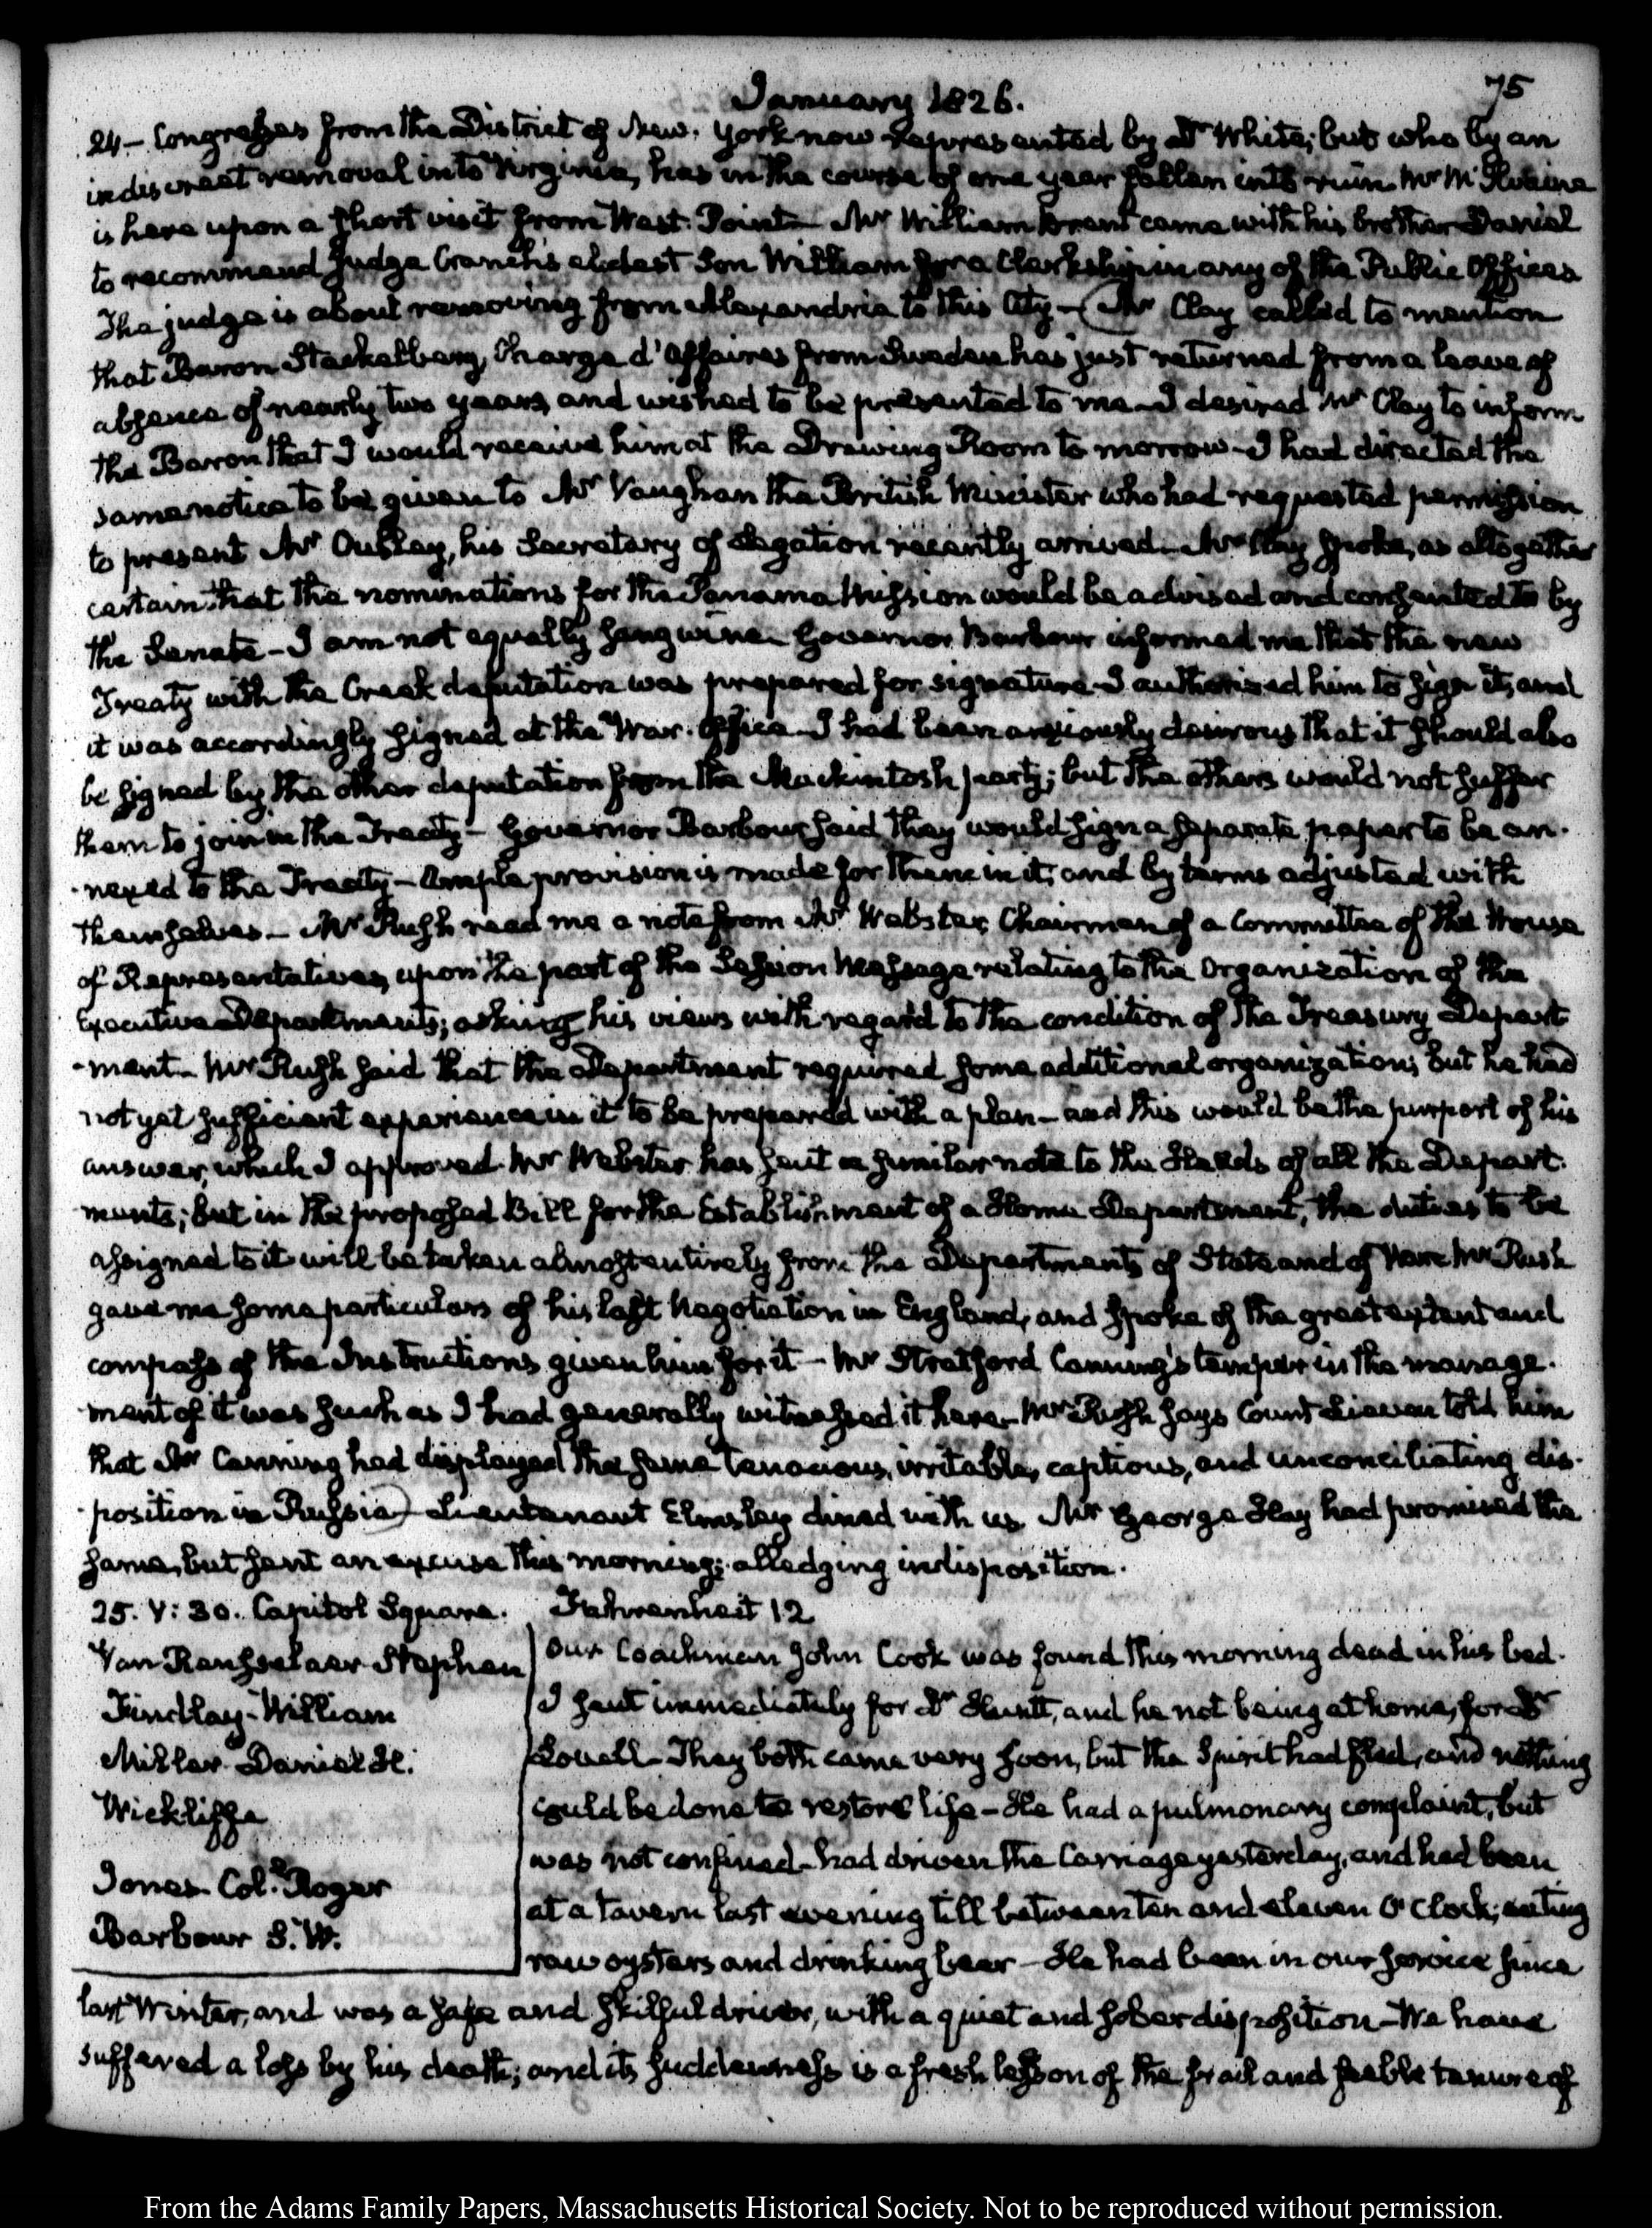 January 1826.
75
24 - Congresses from the District of New-York now represented by Mr White; but who by an
indiscreet removal into Virginia, has in the course of one year fallen into ruin. Mr McIlvaine
is here upon a short visit from West-Point - Mr William Brent came with his brother Daniel
to recommend Judge Cranch's eldest Son William for a Clerkship in any of the Public Offices
The judge is about removing from Alexandria to this City - (Mr Clay called to mention
that Baron Stackelberg, Chargé d'Affaires from Sweden has just returned from a leave of
absence of nearly two years, and wished to be presented to me - I desired Mr Clay to inform
the Baron that I would receive him at the Drawing Room to morrow - I had directed the
same notice to be given to Mr Vaughan the British Minister who had requested permission
to present Mr Ouseley, his Secretary of Legation recently arrived - Mr Clay spoke, as altogether
certain that the nominations for the Panama Mission would be advised and consented to by
the Senate - I am not equally sanguine - Governor Barbour informed me that the new
Treaty with the Creek deputation was prepared for signature - I authorised him to sign it, and
it was accordingly signed at the War-Office - I had been anxiously desirous that it should also
be signed by the other deputation from the Mackintosh party; but the others would not suffer
them to join in the Treaty - Governor Barbour said they would sign a separate paper to be an-
-nexed to the Treaty - Ample provision is made for them in it; and by terms adjusted with
themselves - Mr Rush read me a note from Mr Webster, Chairman of a Committee of the House
of Representatives, upon the part of the Session Message relating to the Organization of the
Executive Departments; asking his views with regard to the condition of the Treasury Depart
-ment - Mr Rush said that the Department required some additional organization; but he had
not yet sufficient experience in it to be prepared with a plan - and this would be the purport of his
answer, which I approved. Mr Webster has sent a similar note to the Heads of all the Depart-
-ments; but in the proposed Bill for the Establishment of a Home Department, the duties to be
assigned to it will be taken almost entirely from the Departments of State and of War. Mr Rush
gave me some particulars of his last Negotiation in England, and spoke of the great extent and
compass of the Instructions given him for it - Mr Stratford Canning's temper in the manage-
-ment of it was such as I had generally witnessed it here - Mr Rush says Count Lieven told him
that Mr Canning had displayed the same tenacious, irritable, captious, and unconciliating dis-
-position in Russia) - Lieutenant Elmsley dined with us. Mr George Hay had promised the
same, but sent an excuse this morning; alledging indisposition.
25. V: 30. Capitol Square. Fahrenheit 12
Van Rensselaer Stephen
Findlay - William
Miller - Daniel H.
Wickliffe
Jones. Col. Roger
Barbour S. W.
Our Coachman John Cook was found this morning dead in his bed.
I sent immediately for Dr Huntt, and he not being at home, for Dr
Lovell - They both came very soon, but the Spirit had fled, and nothing
could be done to restore life - He had a pulmonary complaint, but
was not confined - had driven the Carriage yesterday, and had been
at a tavern last evening till between ten and eleven O'Clock; eating
raw oysters and drinking beer - He had been in our service since
last Winter, and was a safe and skilful driver, with a quiet and sober disposition - We have
suffered a loss by his death; and its suddenness is a fresh lesson of the frail and feeble tenure of
From the Adams Family Papers, Massachusetts Historical Society. Not to be reproduced without permission.